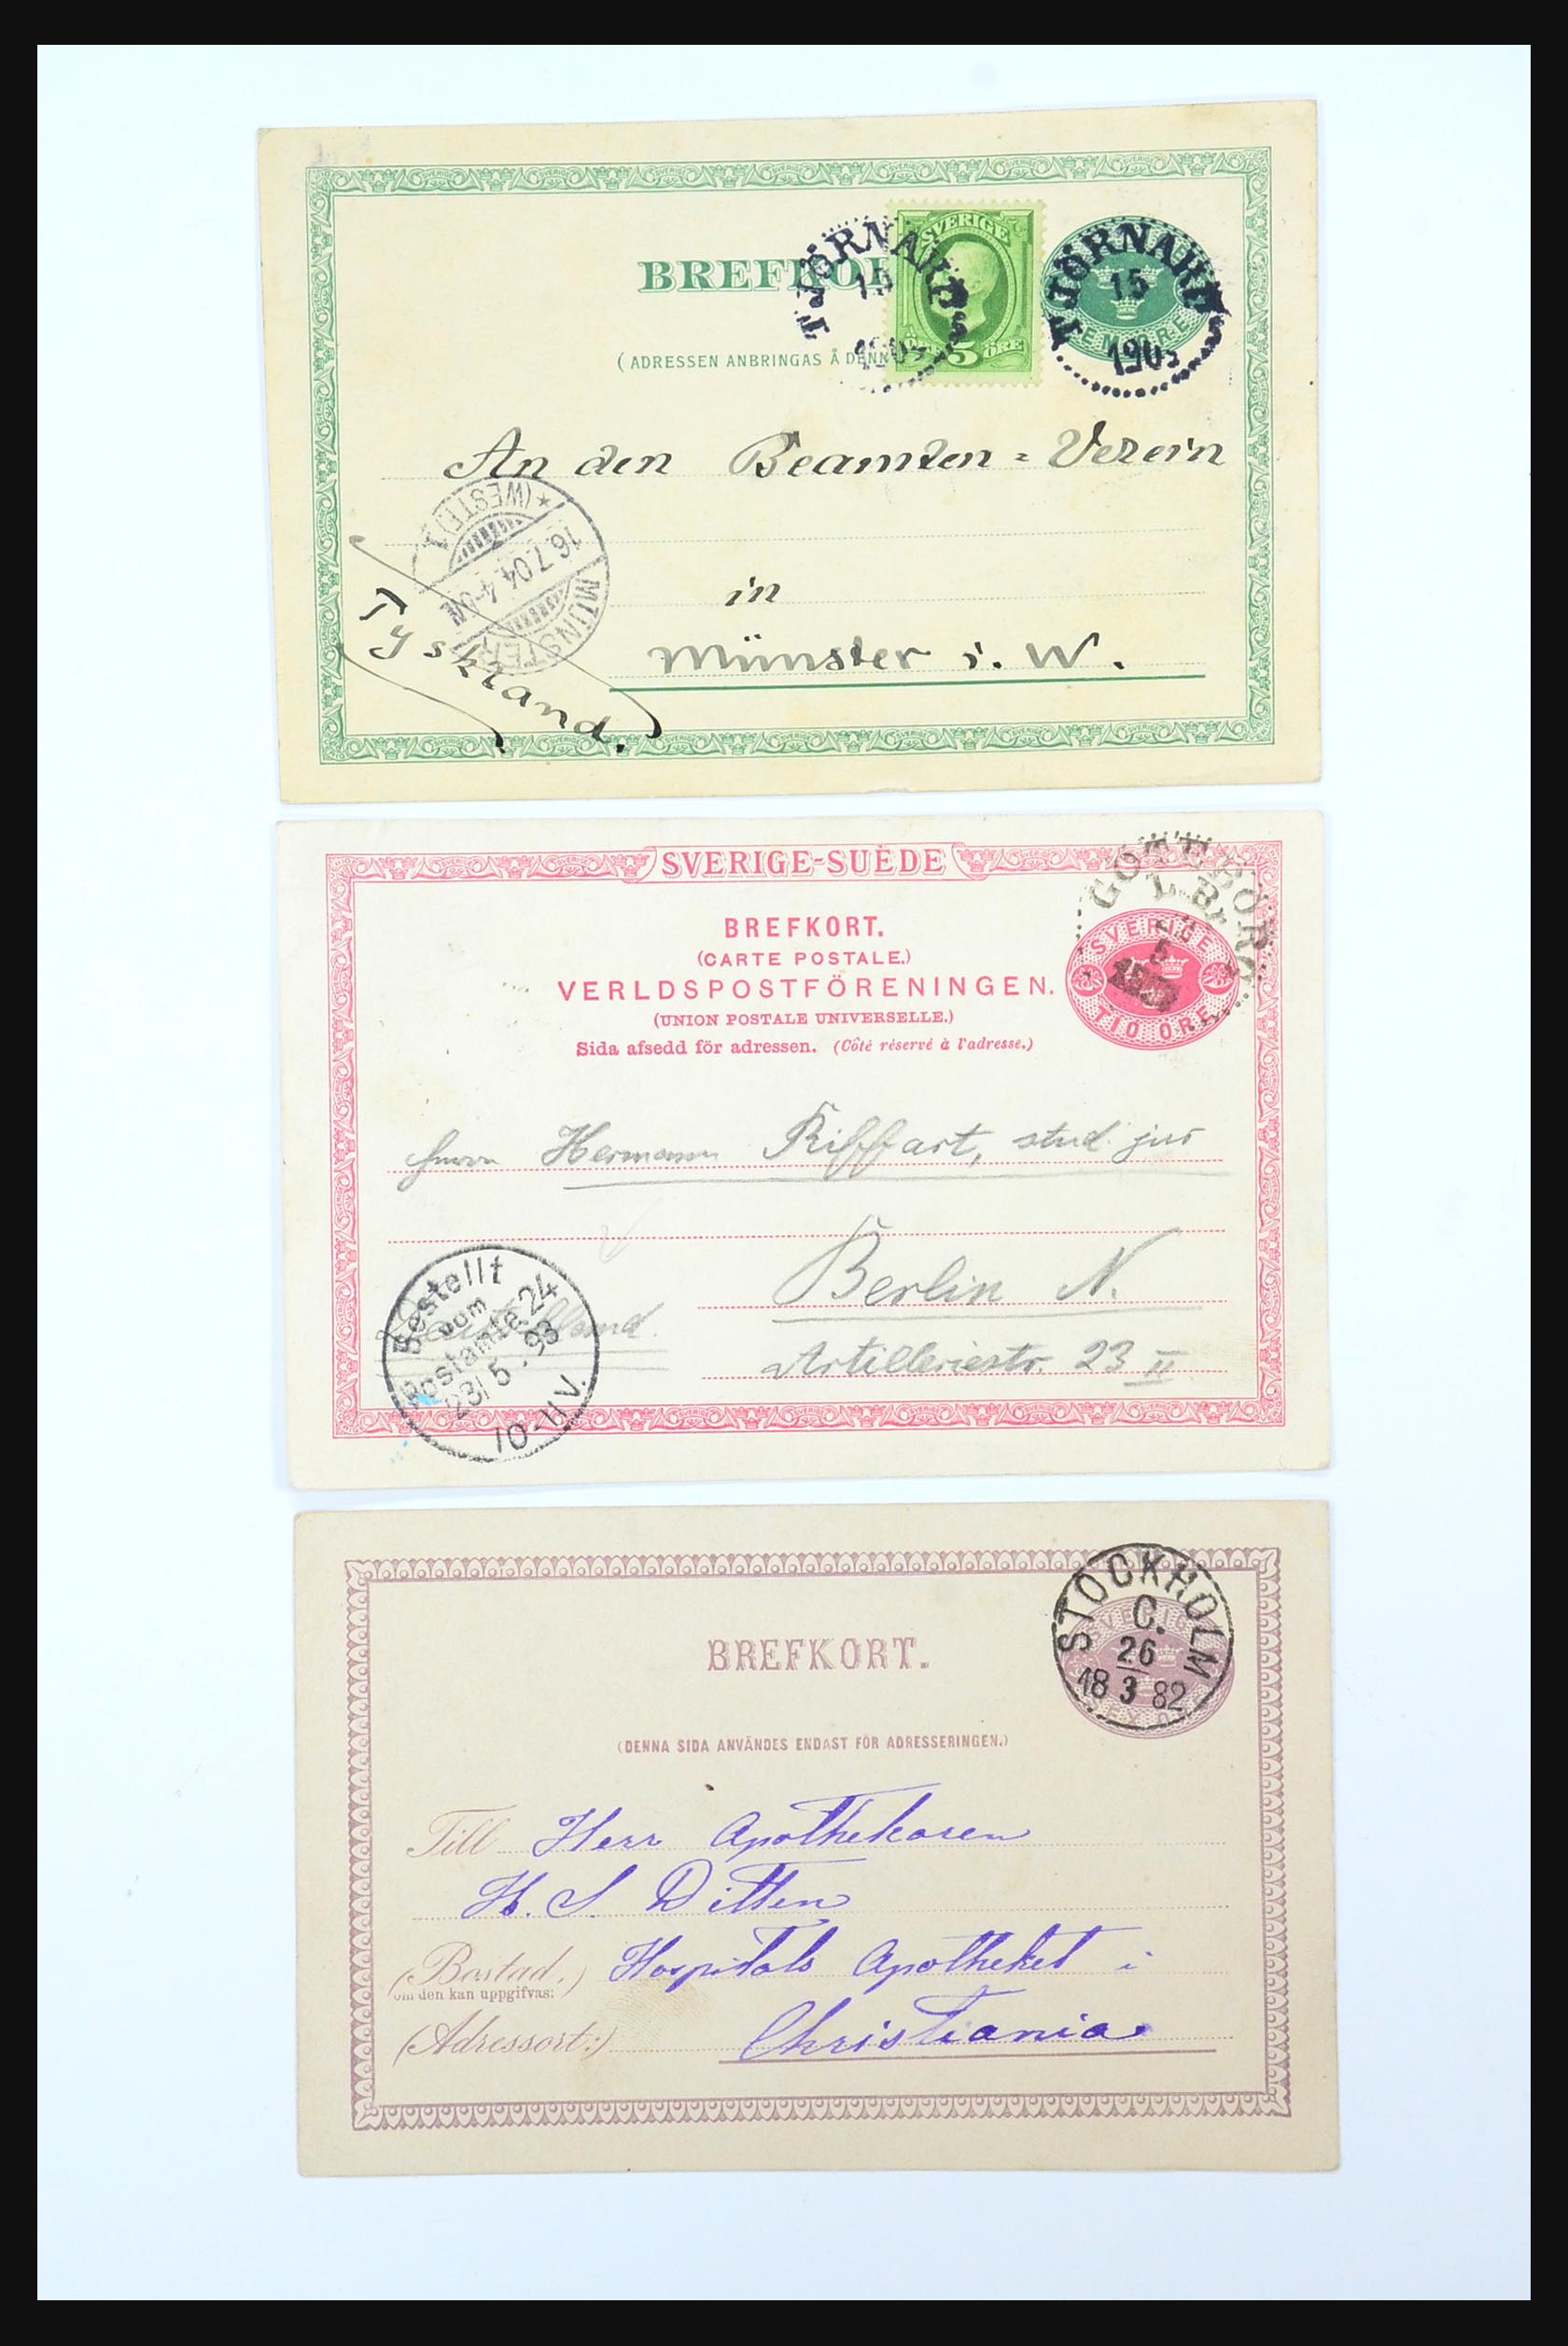 BREFKOR
(ADRESSEN ANBRINGAS Å DENN
SVERIGE
5 ÖRE
TJÖRNARP
15
TJÖRNARP
15
190
FEM ÖRE
An den Beamten = Verein
in
Münster i. W.
Tyskland.
MÜNSTER
16.7.04.4-5N
(WESTF.) 1
SVERIGE-SUÈDE
BREFKORT.
(CARTE POSTALE.)
VERLDSPOSTFÖRENINGEN.
(UNION POSTALE UNIVERSELLE.)
Sida afsedd för adressen. (Côté réservé à l'adresse.)
GÖTEBORG
L. Br
5
SVERIGE
TIO ÖRE
Herrn Hermann Riffart, stud. jur
Berlin N.
Artilleriestr. 23 II
Deutschland.
Bestellt
vom
Postamte 24
23/5.93
10-11V.
BREFKORT.
(DENNA SIDA ANVÄNDES ENDAST FÖR ADRESSERINGEN.)
STOCKHOLM
C.
26
18 3 82
SVERIGE
SEX ÖRE
Till Herr Apothekaren
H. S. Ditten
(Bostad,) Hospitals Apotheket i
om den kan uppgifvas:
(Adressort:) Christiania